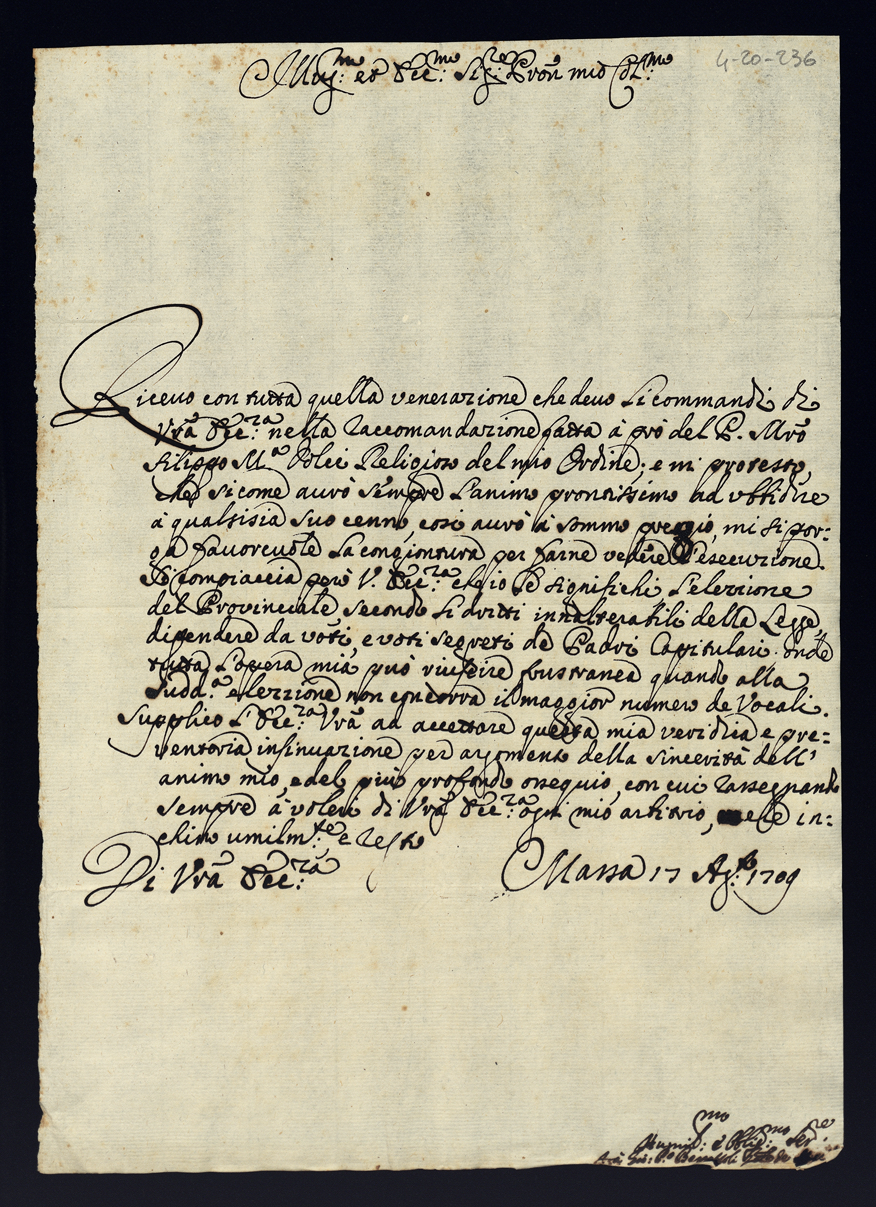 4-20-236
Ill:mo et Ecc:mo Sig:re Pron mio Col:mo
Riceuo con tutta quella venerazione che deuo li commandi di
Vra Ecc:za nella raccomandazione fatta à prò del P. Mro
Filippo M.a Dolci Religioso del mio Ordine; e mi protesto,
che sicome aurò sempre l'animo prontissimo ad vbbidire
à qualsisia suo cenno, così aurò à sommo preggio, mi si por:
ga fauoreuole la congiontura per farne vedere l'esecuzione.
Si compiaccia però V. Ecc:za ch'io le significhi l'elezzione
del Prouinciale secondo li dritti innalterabili della Legge,
dipendere da voti, e voti segreti de Padri Capitulari; onde
tutta l'opera mia può riuscire frustranea quando alla
sudd.a elezzione non concorra il maggior numero de Vocali.
Supplico l'Ecc:za Vra ad accettare questa mia veridica e pre:
ventoria insinuazione per argomento della sincerità dell'
animo mio, e del più profondo ossequio, con cui rassegnando
sempre à voleri di Vra Ecc:za ogni mio arbitrio, me le in:
chino umilm:te e resto
Di Vra Ecc:za
Massa 17 Ag:to 1709
Vmilis:mo ed Oblig:mo Ser:re